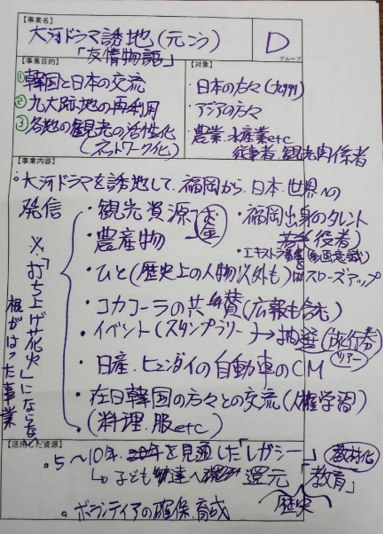 【事業名】
大河ドラマ誘地(元こう)
「友情物語」
D
グループ
【事業目的】
①韓国と日本の交流
②九大跡地の再利用
③各地の観光の活性化
(ネットワーク化)
【対象】
・日本の方々(九州)
・アジアの方々
・農業、水産業etc
従事者、観光関係者
【事業内容】
・大河ドラマを誘地して、福岡から、日本、世界への
発信
・観光資源
・農産物
・ひと(歴史上の人物以外も)
・福岡出身のタレント
役者)
・エキストラ募集
スローズアップ
・コカコーラの共賛(広報も含む)
・イベント(スタンプラリー)→抽選(旅行券)
ツアー
・日産、ヒュンダイの自動車のCM
・在日韓国の方々との交流(人権学習)
(料理、服etc)
※「お打ち上げ花火」にならない
根がはった事業
【活用した資源】
・5～10年を見通した「レガシー」(教材化)
↳子ども達へ還元「教育」
歴史
・ボランティアの確保、育成